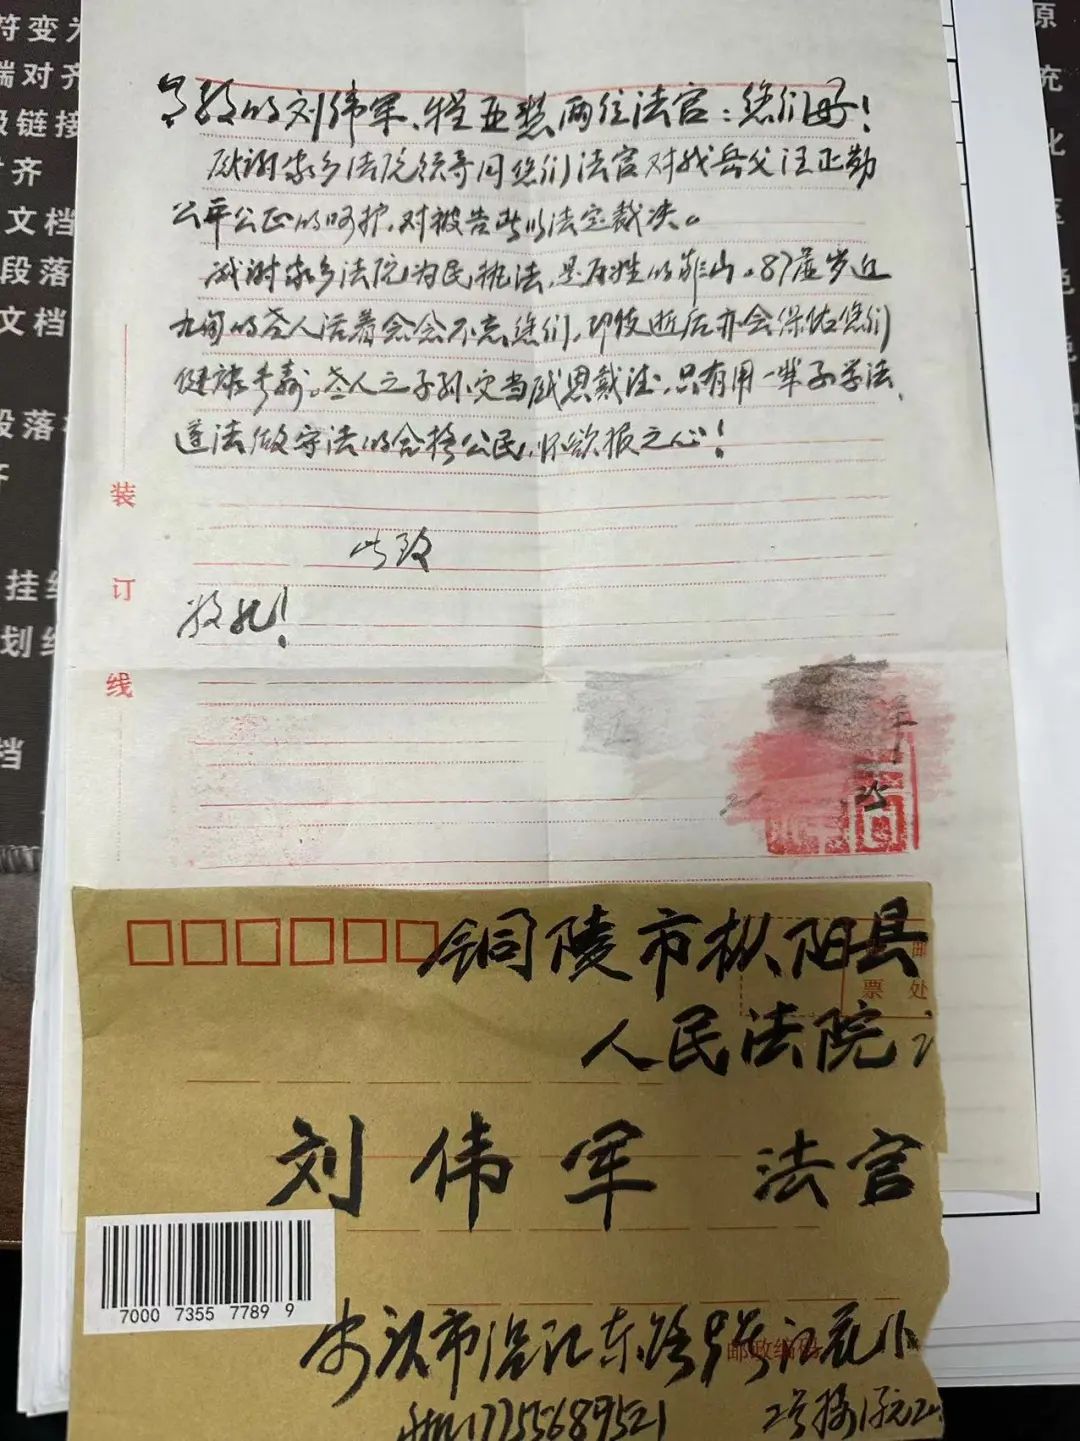 符变为
端对齐
级链接
对齐
文档
段落
文档
段落
齐
挂
划
档
原
充
化
尊敬的刘伟军、程亚慧两位法官：您们好！
感谢家乡法院领导同您们法官对我岳父汪正勤
公平公正的呵护，对被告些以法定裁决。
感谢家乡法院为民执法，是百姓的靠山。87虚岁近
九旬的老人活着念念不忘您们，即使逝后亦会保佑您们
健康长寿。老人之子孙定当感恩戴德，只有用一辈子学法、
遵法做守法的合格公民，怀欲报之心！
此致
敬礼！
装
订
线
铜陵市枞阳县
人民法院
邮
票 处
刘伟军 法官
7000 7355 7789 9
安庆市沿江东路 江花小
邮政编码
手机17755689521 2号楼1元